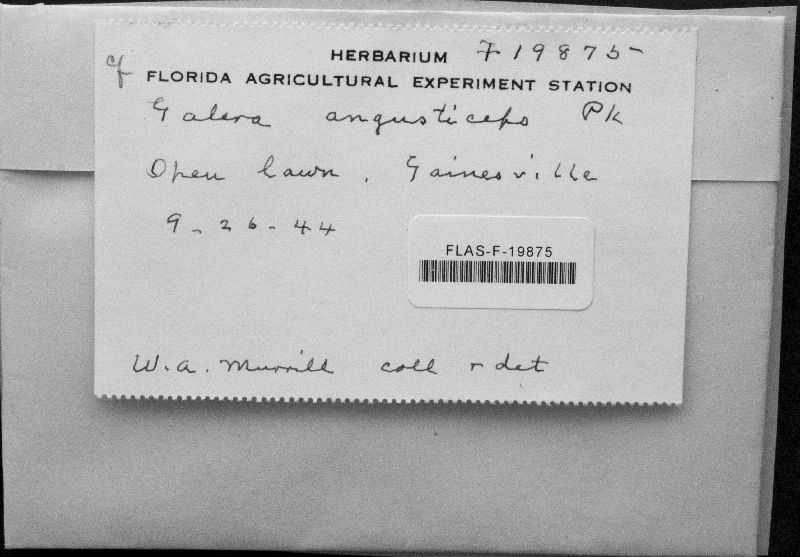 HERBARIUM F19875
cf FLORIDA AGRICULTURAL EXPERIMENT STATION
Galera angusticeps Pk
Open lawn, Gainesville
9-26-44
FLAS-F-19875
W.A. Murrill coll & det